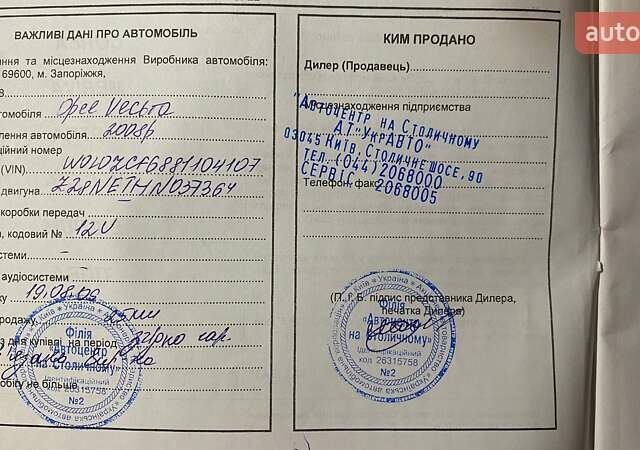 auto
ВАЖЛИВІ ДАНІ ПРО АВТОМОБІЛЬ
ння та місцезнаходження Виробника автомобіля:
69600, м. Запоріжжя,
мобіля Opel Vectra
лення автомобіля 2008р
ційний номер
(VIN) W0L0ZCF6881104107
двигуна Z28NETHN037364
коробки передач
, кодовий № 12U
стеми -
аудіосистеми -
ку 19.08.08
родажу
з дня купівлі на період
обігу не більше
Філія
«Автоцентр
на Столичному»
Ідентифікаційний
код 26315758
№2
КИМ ПРОДАНО
Дилер (Продавець)
Місцезнаходження підприємства
"Автоцентр на Столичному
АТ"УкрАВТО"
03045 Київ, Столичне шосе, 90
Тел. (044) 2068000
Сервіс - 2068005
Телефон, факс
(П. І. Б. підпис представника Дилера,
печатка Дилера)
Філія
«Автоцентр
на Столичному»
Ідентифікаційний
код 26315758
№2